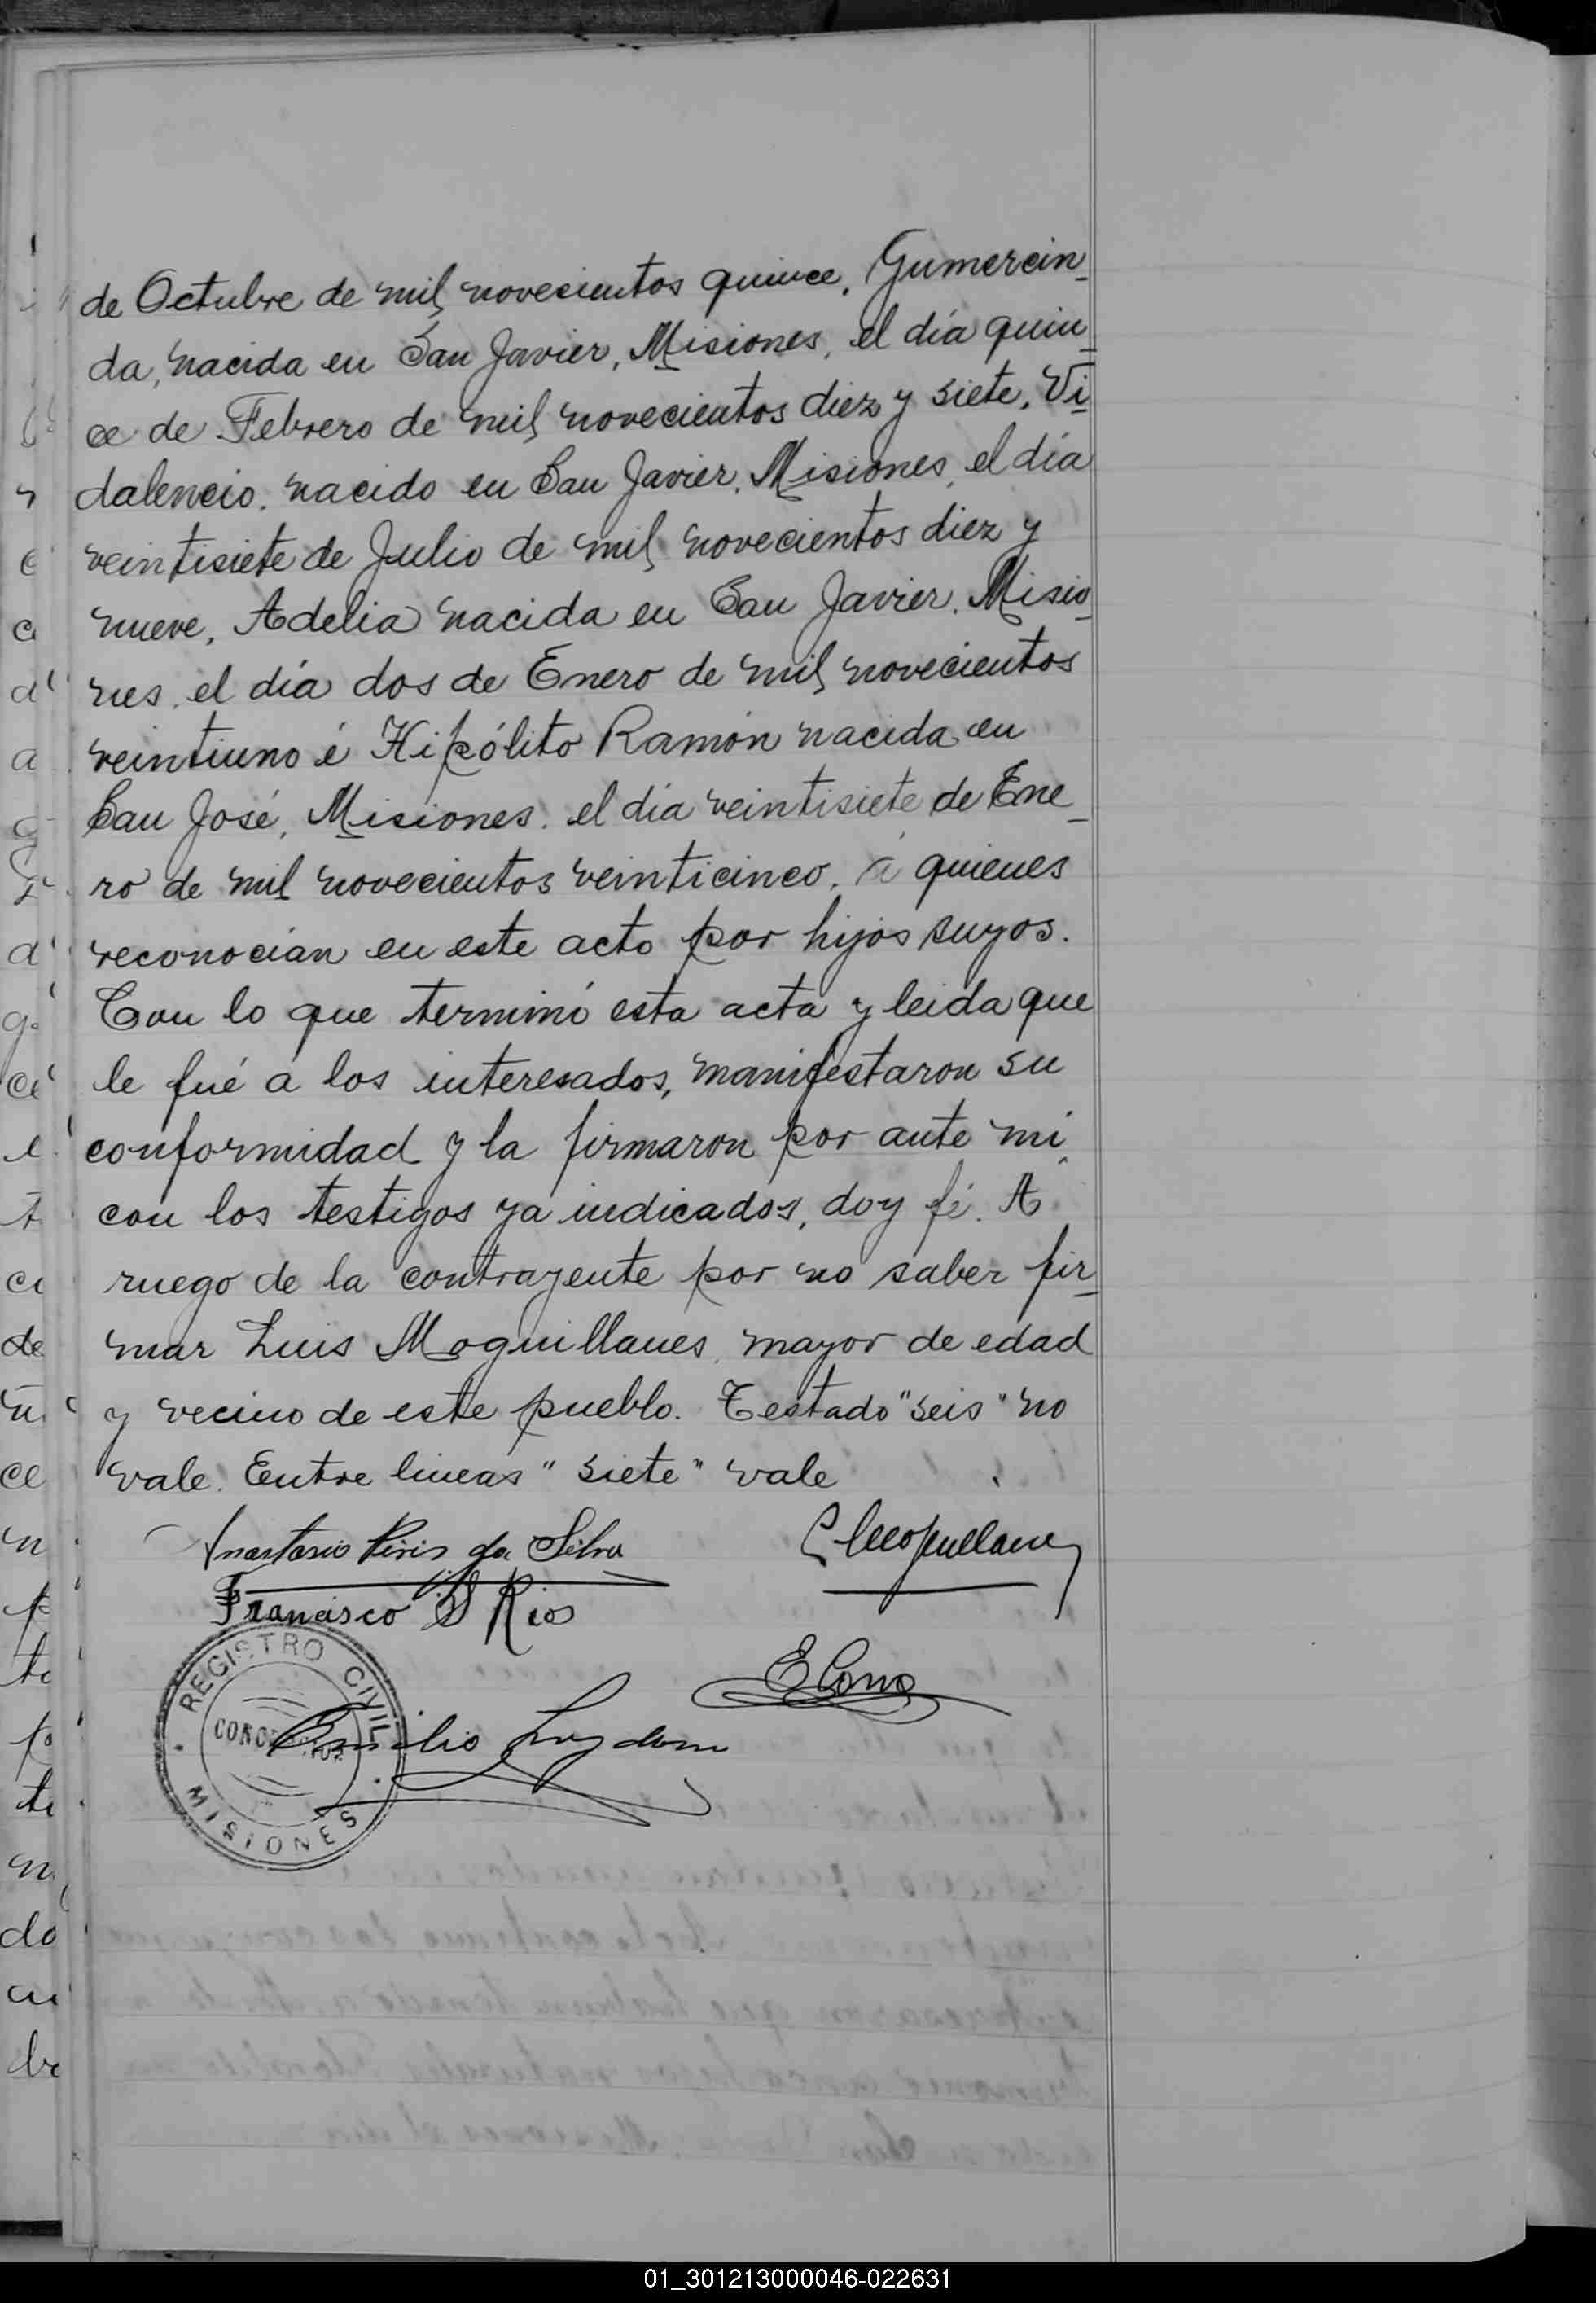 de Octubre de mil novecientos quince, Gumercin_
da, nacida en San Javier, Misiones, el día quin_
ce de Febrero de mil novecientos diez y siete, Vi_
dalencio, nacido en San Javier, Misiones, el día
veintisiete de Julio de mil novecientos diez y
nueve, Adelia nacida en San Javier, Misio_
nes, el día dos de Enero de mil novecientos
veintiuno é Hipólito Ramón nacida en
San José, Misiones, el día veintisiete de Ene_
ro de mil novecientos veinticinco, á quienes
reconocían en este acto por hijos suyos.
Con lo que terminó esta acta y leida que
le fué a los interesados, manifestaron su
conformidad y la firmaron por ante mi,
con los testigos ya indicados, doy fé. A
ruego de la contrayente por no saber fir_
mar Luis Moguillanes, mayor de edad
y vecino de este pueblo. Testado "seis" no
vale. Entre lineas "siete" vale
Anastasio Piris da Silva
Francisco S Rios
REGISTRO CIVIL
CONCEPCION
MISIONES
Emilio
01_301213000046-022631